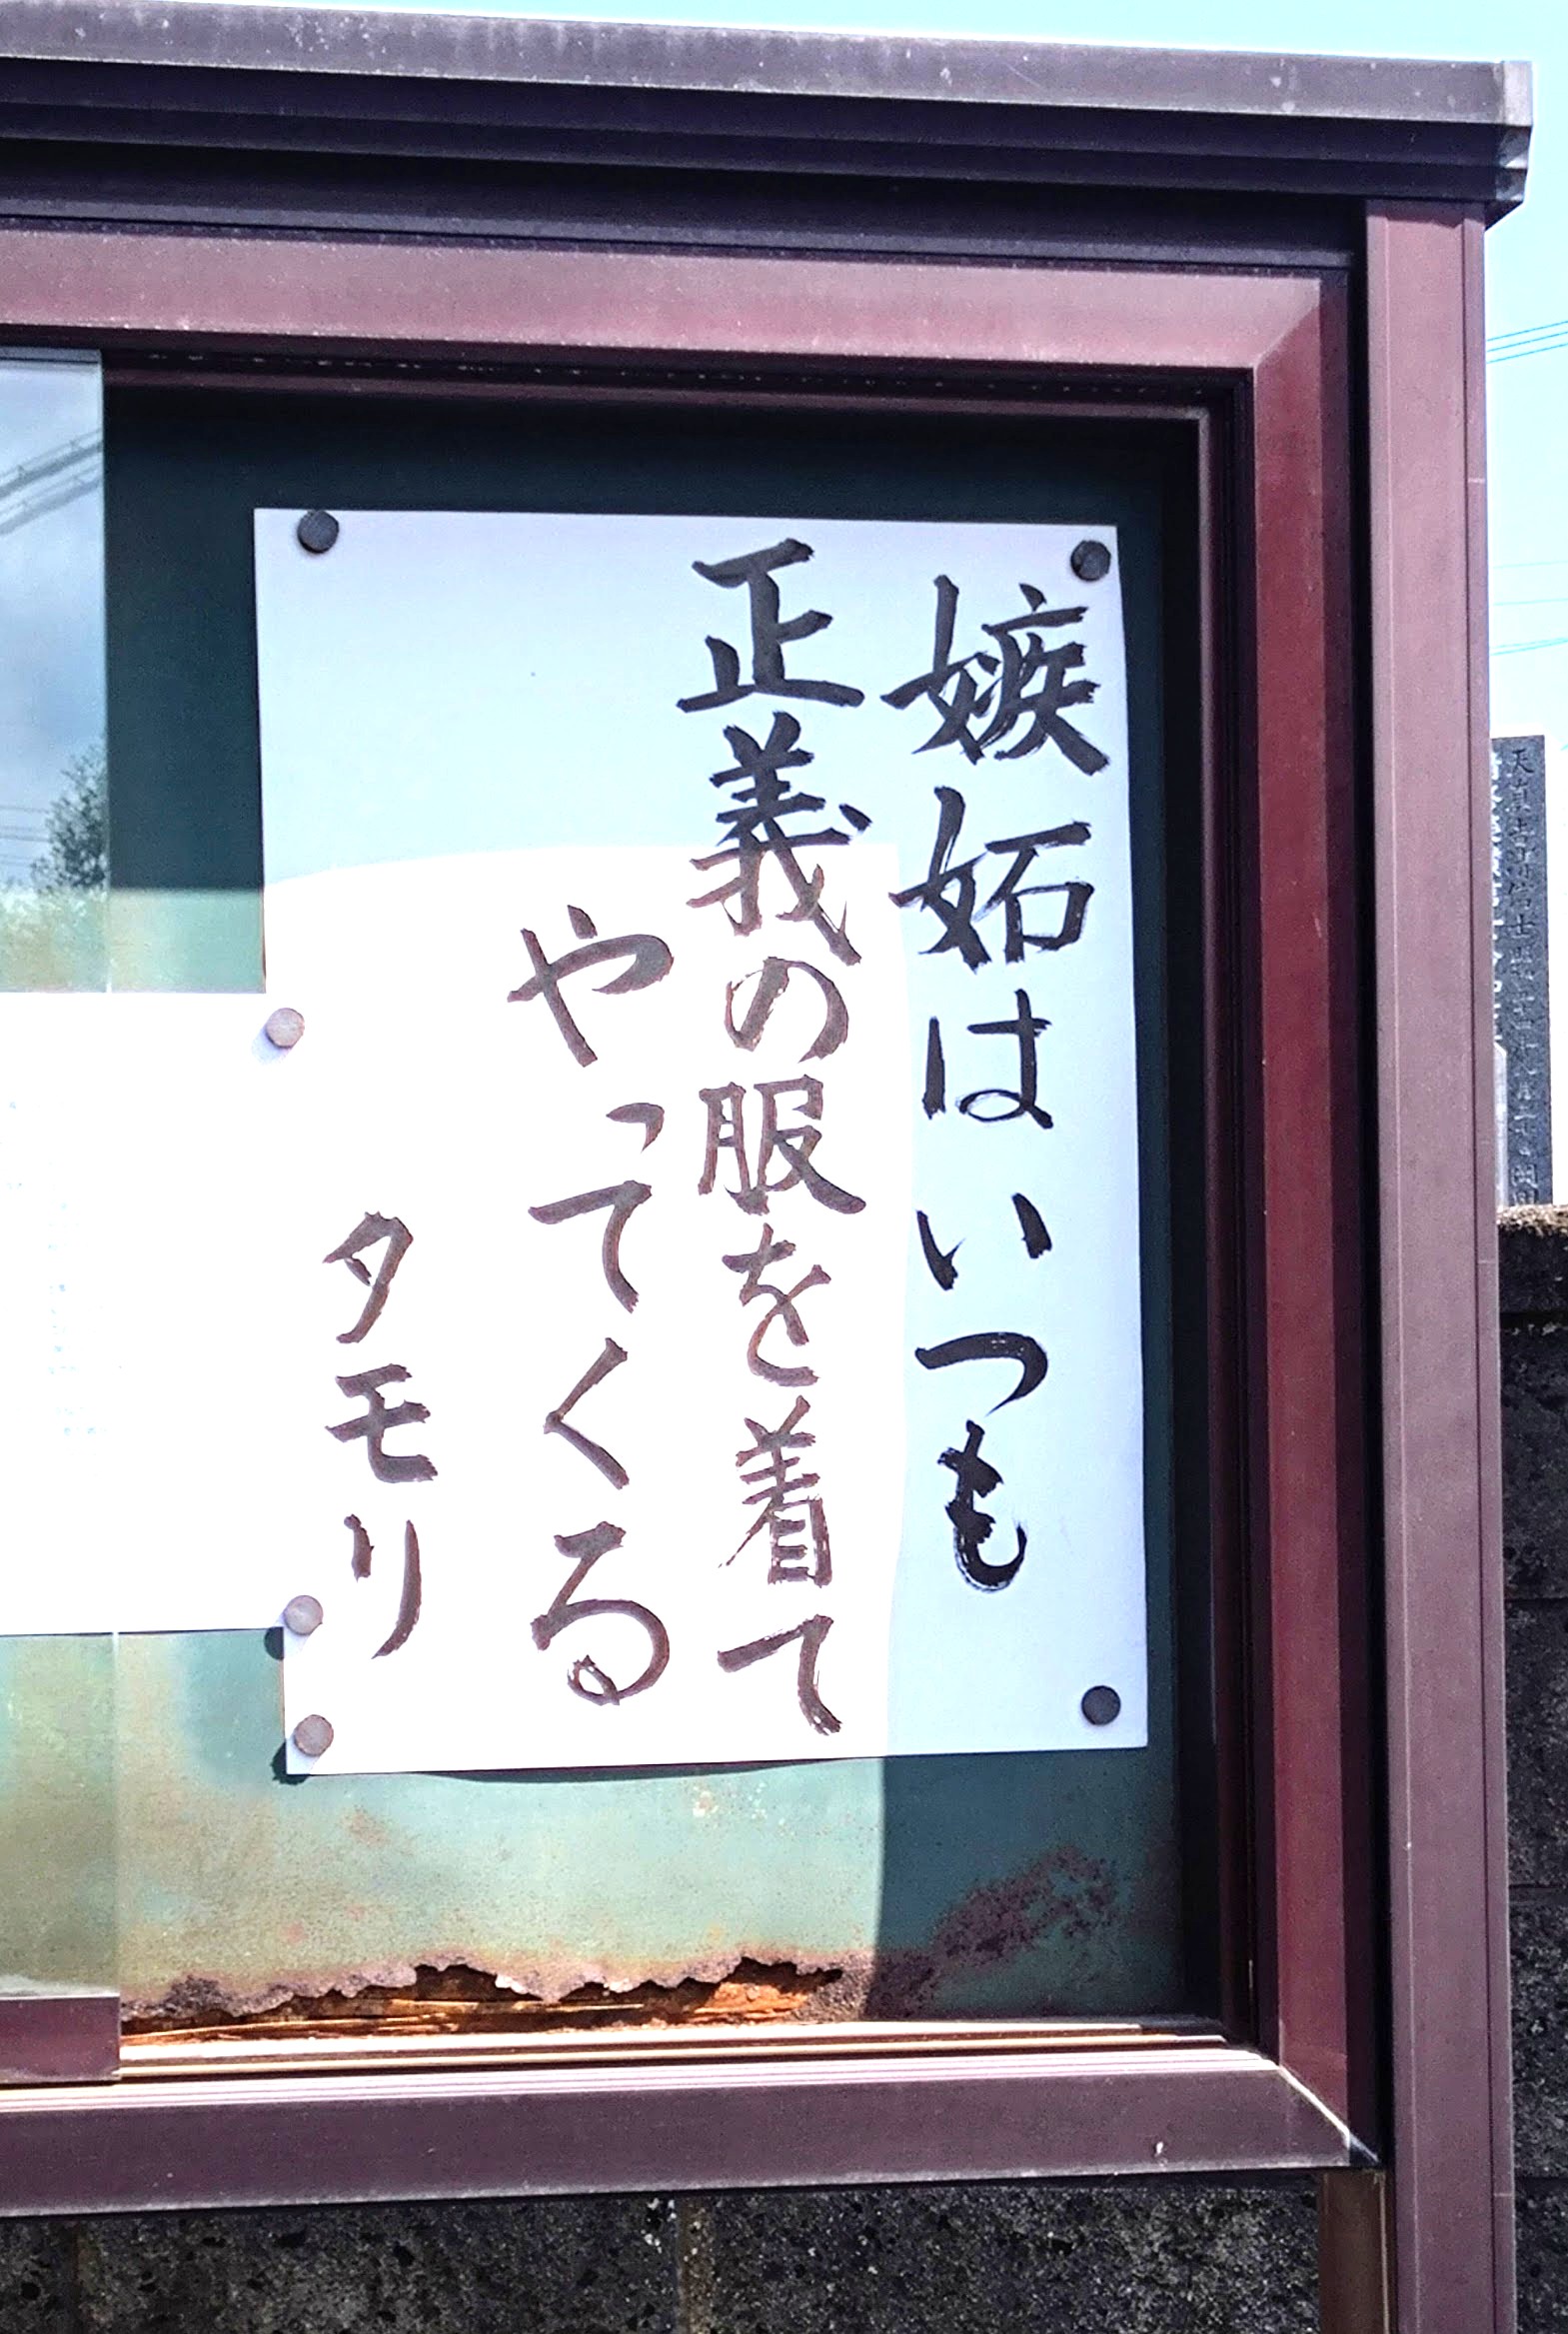 嫉妬はいつも
正義の服を着て
やってくる
タモリ